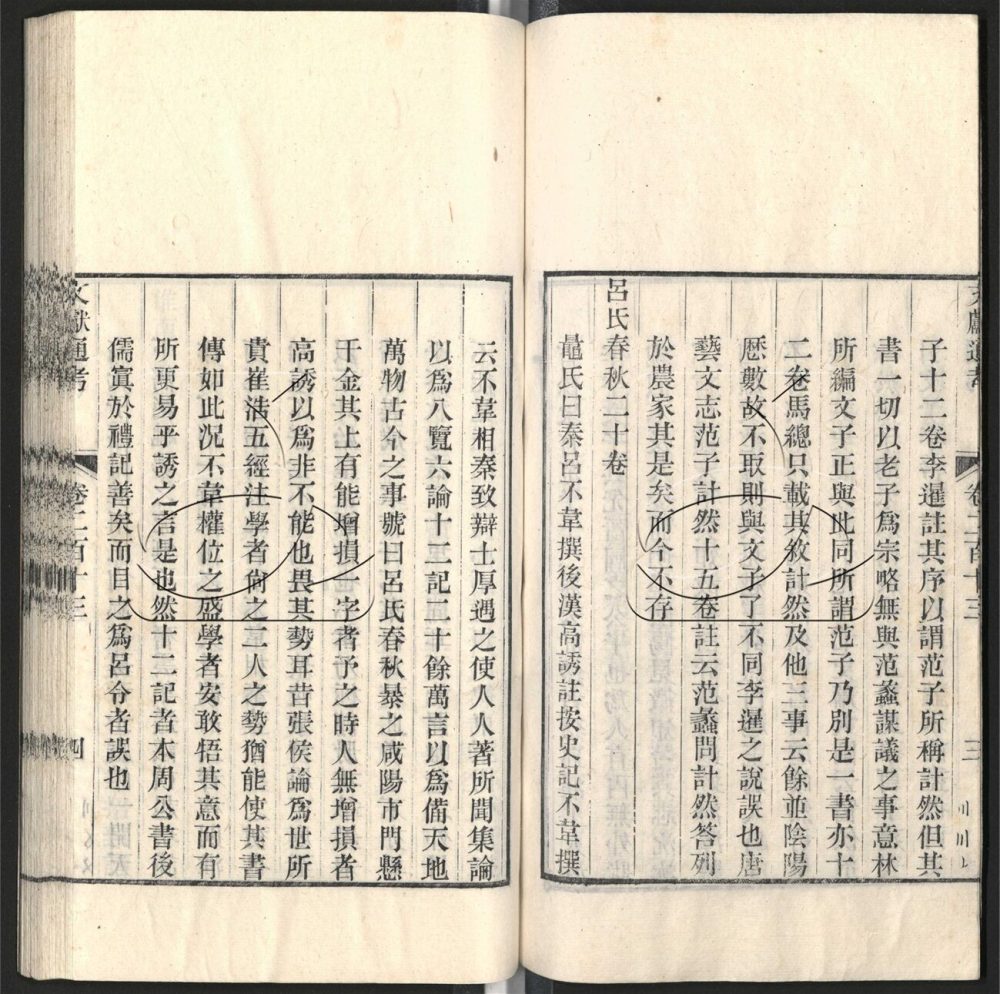 文獻通考 卷二百十三 三
子十二卷李暹註其序以謂范子所稱計然但其
書一切以老子爲宗略無與范蠡謀議之事意林
所編文子正與此同所謂范子乃別是一書亦十
二卷馬總只載其敘計然及他三事云餘並陰陽
歷數故不取則與文子了不同李暹之說誤也唐
藝文志范子計然十五卷註云范蠡問計然答列
於農家其是矣而今不存
呂氏春秋二十卷
鼂氏曰秦呂不韋撰後漢高誘註按史記不韋撰
云不韋相秦致辯士厚遇之使人人著所聞集論
以爲八覽六論十二記二十餘萬言以爲備天地
萬物古今之事號曰呂氏春秋暴之咸陽市門懸
千金其上有能增損一字者予之時人無增損者
高誘以爲非不能也畏其勢耳昔張侯論爲世所
貴崔浩五經注學者尙之二人之勢猶能使其書
傳如此况不韋權位之盛學者安敢牾其意而有
所更易乎誘之言是也然十二記者本周公書後
儒寘於禮記善矣而目之爲呂令者誤也
文獻通考 卷二百十三 四